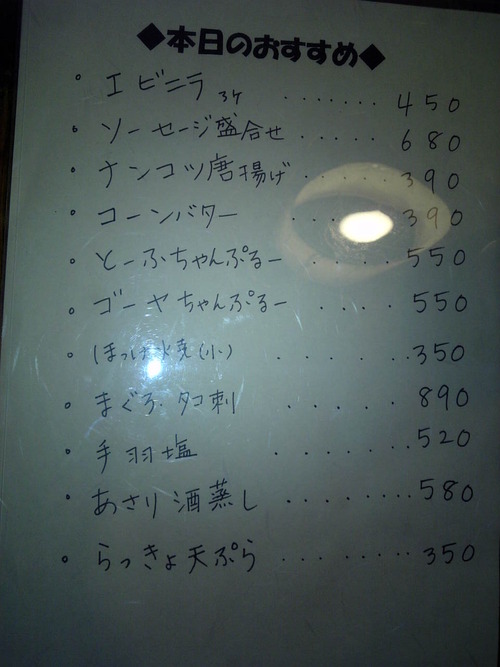 ◆本日のおすすめ◆
。エビニラ 3ケ ....... 450
。ソーセージ盛合せ ..... 680
。ナンコツ唐揚げ ..... 390
。コーンバター ... 390
。とーふちゃんぷるー ..... 550
。ゴーヤちゃんぷるー .... 550
。ほっけ焼(小) ...... 350
。まぐろ.タコ刺 .... 890
。手羽塩 ...... 520
。あさり酒蒸し ........ 580
。らっきょ天ぷら ........ 350